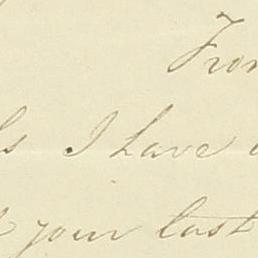 From
I have
your last